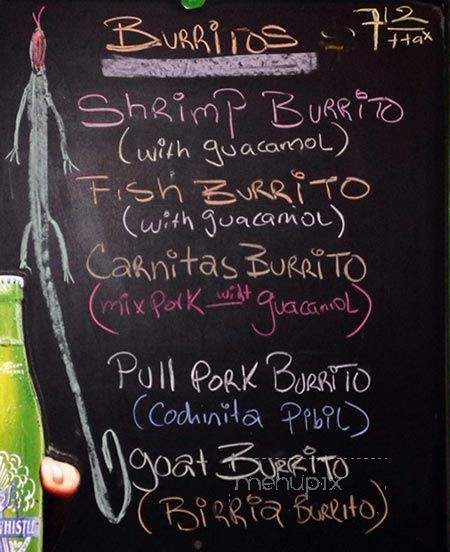 Burritos - 7 12
++ax
Shrimp Burrito
(with guacamol)
Fish Burrito
(with guacamol)
Carnitas Burrito
(mix Pork wiht guacamol)
Pull Pork Burrito
(Cochinita Pibil)
goat Burrito
menupix
(Birria Burrito)
HISTLE